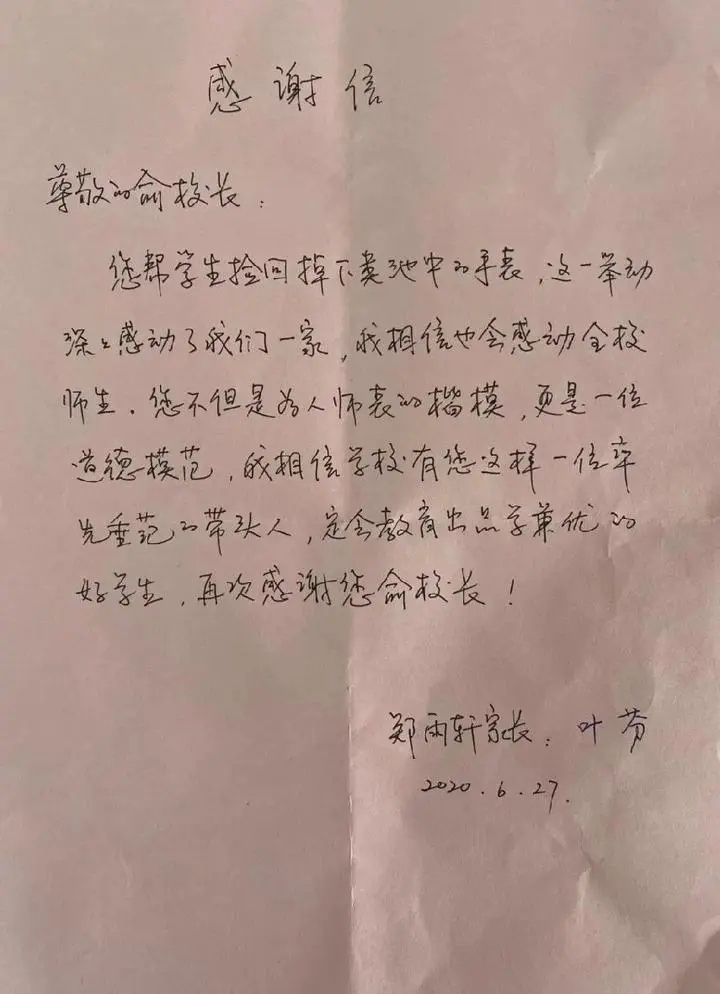 感谢信
尊敬的俞校长：
您帮学生捡回掉下粪池中的手表，这一举动
深深感动了我们一家，我相信也会感动全校
师生。您不但是为人师表的楷模，更是一位
道德模范，我相信学校有您这样一位率
先垂范的带头人，定会教育出品学兼优的
好学生，再次感谢您俞校长！
郑雨轩家长：叶芬
2020.6.27.